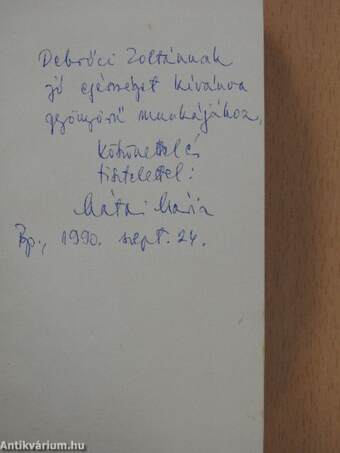 Debrőci Zoltánnak
jó egészséget kívánva
gyönyörű munkájához,
köszönettel és
tisztelettel:
Mátai Mária
Bp., 1990. szept. 24.
Antikvárium.hu